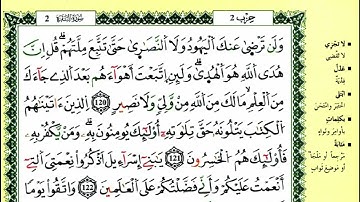 حزب 2
سورة البقرة 2
وَلَن تَرْضَىٰ عَنكَ ٱلْيَهُودُ وَلَا ٱلنَّصَٰرَىٰ حَتَّىٰ تَتَّبِعَ مِلَّتَهُمْ قُلِ انَّ
هُدَى ٱللَّهِ هُوَ ٱلْهُدَىٰ وَلَئِنِ ٱتَّبَعْتَ أَهْوَآءَهُم بَعْدَ ٱلَّذِے جَآءَكَ
مِنَ ٱلْعِلْمِ مَا لَكَ مِنَ ٱللَّهِ مِنْ وَلِيٍّ وَلَا نَصِيرٍ 120 ٱلَّذِينَ ءَاتَيْنَٰهُمُ
ٱلْكِتَٰبَ يَتْلُونَهُۥ حَقَّ تِلَاوَتِهِۦٓ أُوْلَٰٓئِكَ يُومِنُونَ بِهِۦ وَمَنْ يَّكْفُرْ بِهِۦ
فَأُوْلَٰٓئِكَ هُمُ ٱلْخَٰسِرُونَ 121 يَٰبَنِےٓ إِسْرَآءِيلَ ٱذْكُرُوا۟ نِعْمَتِيَ ٱلَّتِےٓ
أَنْعَمْتُ عَلَيْكُمْ وَأَنِّے فَضَّلْتُكُمْ عَلَى ٱلْعَٰلَمِينَ 122 وَٱتَّقُوا۟ يَوْمًا
لا تجزي
لا تقضي
عدل
فدية
ابتلى
اختبر وامتحن
بكلمات
بأوامر ونواه
مثابة
مرجعا أو ملجأ
أو موضع ثواب